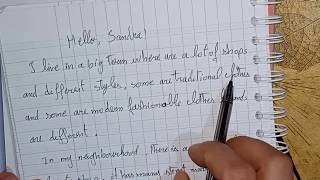 Hello, Sandra!
I live in a big town where are a lot of shops
and different styles, some are traditional clothes
and some are modern fashionable clothes
are different.
In my neighbourhood, there is a